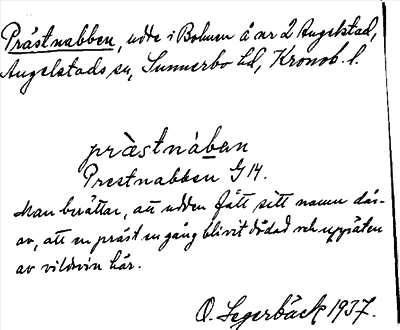 Prästnabben, udde i Bolmen å nr 2 Angelstad,
Angelstads sn, Sunnerbo hd, Kronob. l.
præstnában
Prestnabben G 14.
Man berättar, att udden fått sitt namn där-
av, att en präst en gång blivit dödad och uppäten
av vildsvin här.
O. Segerbäck 1937.